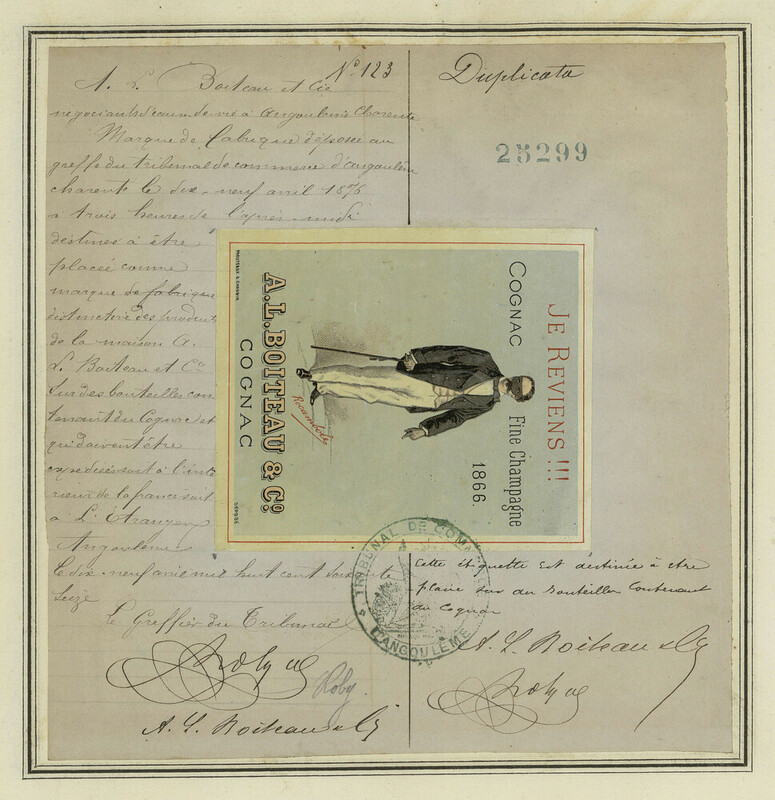 N° 123
A. L. Boiteau et Cie
négociants d'eau de vie à Angoulême Charente
Marque de fabrique déposée au
greffe du tribunal de commerce d'Angoulême
charente le dix-neuf avril 1876
a trois heures de l'après-midi
destinée à être
placée comme
marque de fabrique
distinctive des produits
de la maison A.
L. Boiteau et Co
sur des bouteilles con
tenant du Cognac et
qui doivent être
expédiées soit à l'inté
rieur de la france soit
a L'Étranger
Angoulême
le dix-neuf avril mil huit cent soixante
seize
le Greffier du Tribunal
Roby
A. L. Boiteau & Cie
Duplicata
25299
JE REVIENS !!!
COGNAC Fine Champagne
1866.
Rocambole
A.L. BOITEAU & Co.
COGNAC
DÉPOSÉ
TRIBUNAL DE COMM
D'ANGOULÊME
Cette étiquette est destinée à etre
placée sur des bouteilles Contenant
du Cognac
A. L. Boiteau & Cie